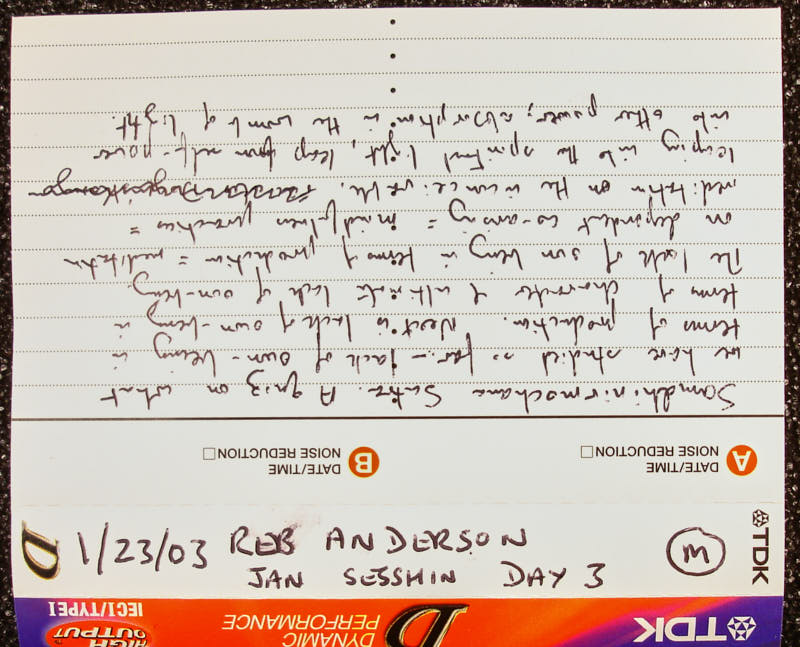 Samdhinirmochana Sutra. A quiz on what
we have studied so far - lack of own-being in
terms of production. Next is lack of own-being in
terms of character & ultimate lack of own-being.
The lack of own being in terms of production = meditation
on dependent co-arising = mindfulness practices =
meditation on the inconceivable.
leaping into the spiritual light, leap from self-power
into other power, absorption in the womb of light.
A DATE/TIME
NOISE REDUCTION
B DATE/TIME
NOISE REDUCTION
D 1/23/03 REB ANDERSON M TDK
JAN SESSHIN DAY 3
TDK D DYNAMIC PERFORMANCE HIGH OUTPUT IECI/TYPEI